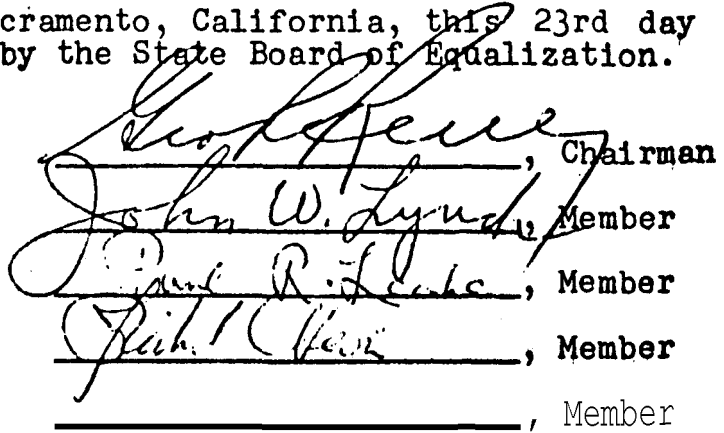 cramento, California, this 23rd day
by the State Board of Equalization.
Geo. R. Reilly, Chairman
John W. Lynch, Member
Paul R. Leake, Member
, Member
, Member